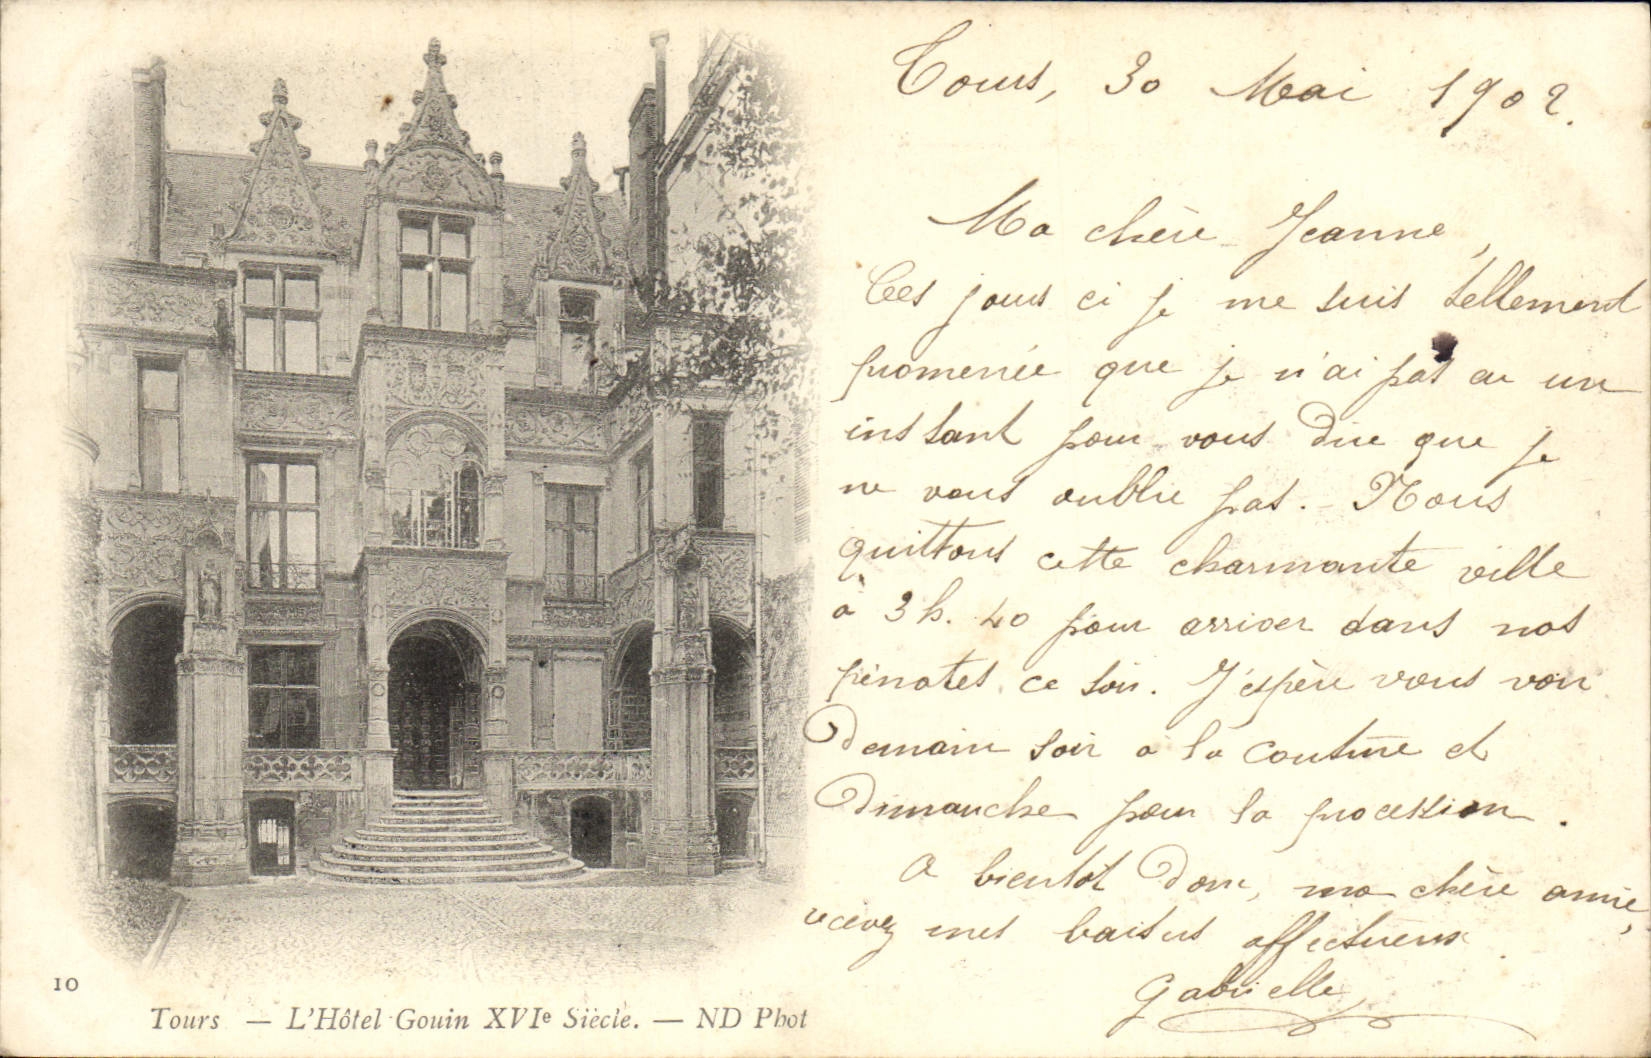 Tours, 30 Mai 1902.
Ma chère Jeanne,
Ces jours ci je me suis tellement
promenée que je n'ai pas eu un
instant pour vous dire que je
ne vous oublie pas. - Nous
quittons cette charmante ville
à 3 h. 40 pour arriver dans nos
pénates ce soir. J'espère vous voir
Demain soir à la couture et
Dimanche pour la procession.
A bientôt donc, ma chère amie,
recevez mes baisers affectueux
Gabrielle
10
Tours — L'Hôtel Gouin XVIe Siècle. — ND Phot